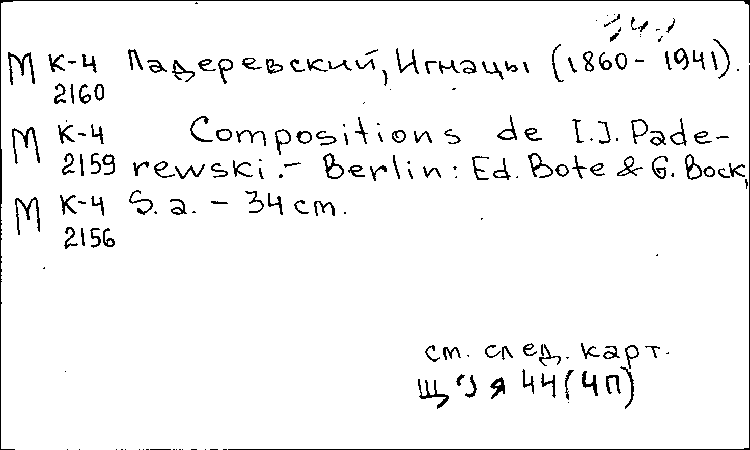 М К-4 Падеревский, Игнацы (1860- 1941).
2160
М К-4 Compositions de I.J. Pade-
2159 rewski.- Berlin: Ed. Bote & G. Bock,
М К-4 S. a. - 34 cm.
2156
см. след. карт.
Я 44(4П)